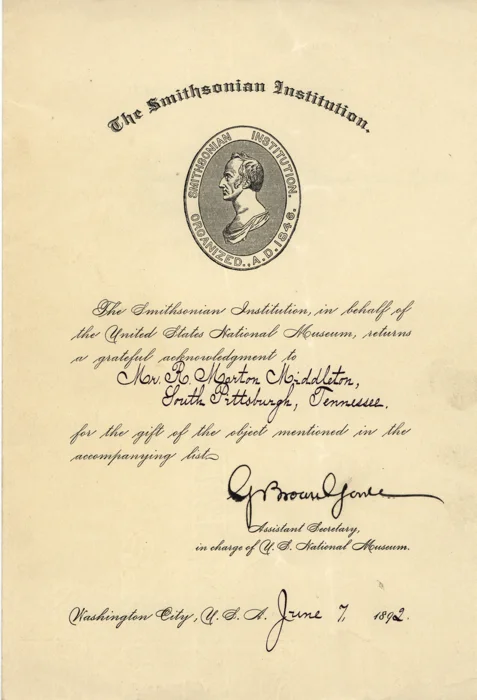 The Smithsonian Institution.
SMITHSONIAN INSTITUTION.
ORGANIZED., A.D. 1846.
The Smithsonian Institution, in behalf of
the United States National Museum, returns
a grateful acknowledgment to
Mr. R. Morton Middleton,
South Pittsburgh, Tennessee.
for the gift of the object mentioned in the
accompanying list
G Brown Goode
Assistant Secretary,
in charge of U. S. National Museum.
Washington City, U. S. A. June 7, 1892.